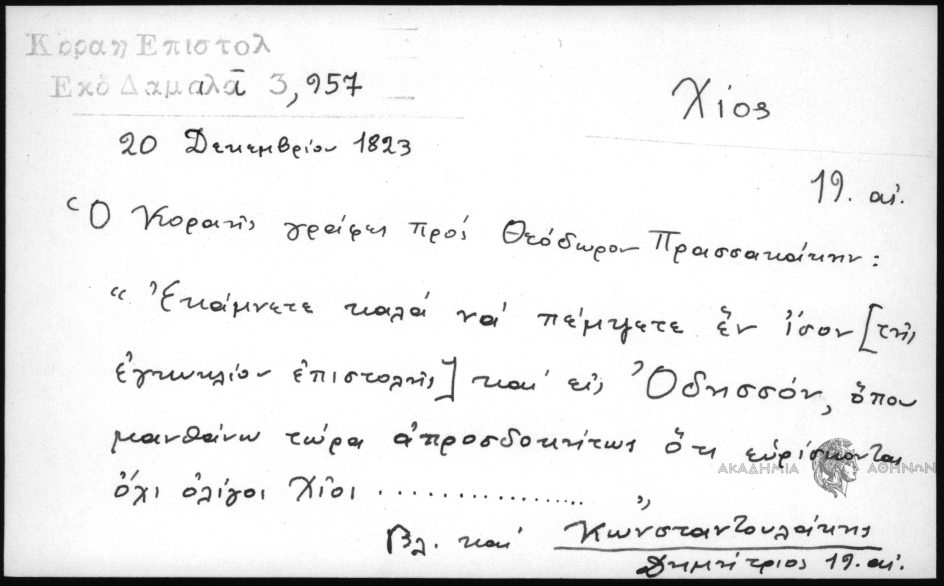 Κοραη Επιστολ
Εκδ Δαμαλᾶ 3,957
Χίος
20 Δεκεμβρίου 1823
19. αἰ.
Ὁ Κοραῆς γράφει πρός Θεόδωρον Πρασσακάκην:
"Ἐκάμνετε καλά νά πέμψετε ἕν ἴσον [τῆς
ἐγκυκλίου ἐπιστολῆς] καί εἰς Ὀδησσόν, ὅπου
μανθάνω τώρα ἀπροσδοκήτως ὅτι εὑρίσκονται
ΑΚΑΔΗΜΙΑ ΑΘΗΝΩΝ
ὄχι ὀλίγοι Χῖοι .................. "
Βλ. καί Κωνσταντουλάκης
Δημήτριος 19. αἰ.